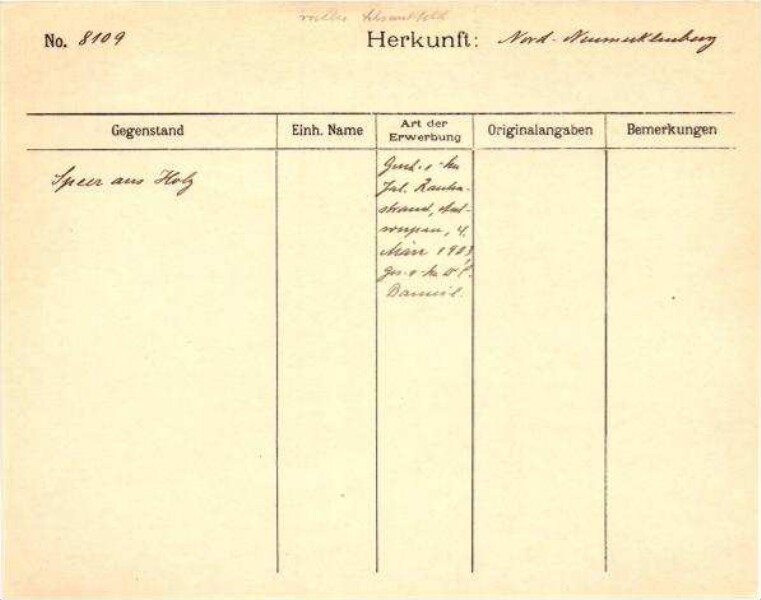 No. 8109 Herkunft: Nord-Neumecklenburg
Gegenstand Einh. Name Art der Erwerbung Originalangaben Bemerkungen
Speer aus Holz
Gesch. v. Hn
Jul.
strand, Ant-
werpen, 4.
März 1903
ges. v. Hn Dr